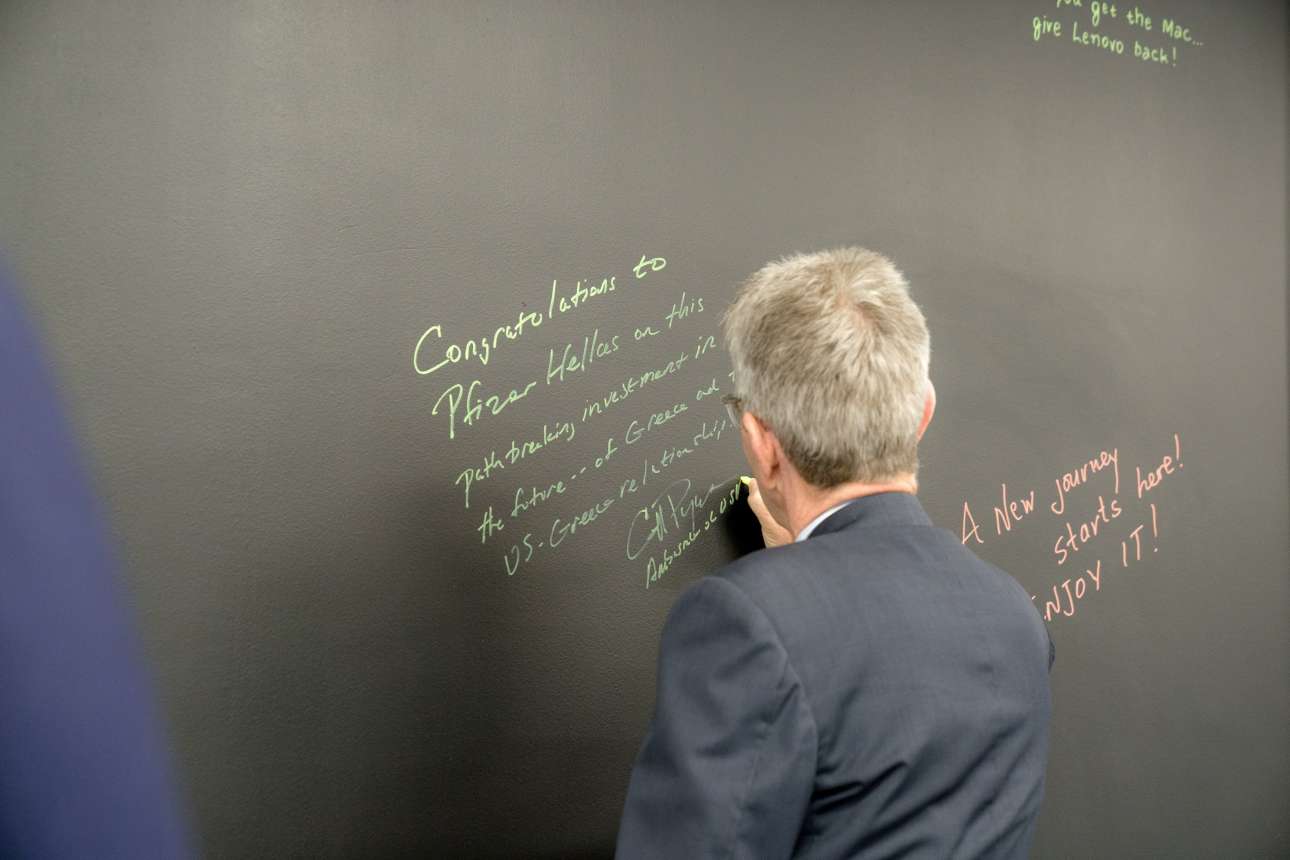 you get the Mac...
give Lenovo back!
Congratulations to
Pfizer Hellas on this
pathbreaking investment in
the future -- of Greece ad
US-Greece relationship.
Ambassador
A New journey
starts here!
ENJOY IT!